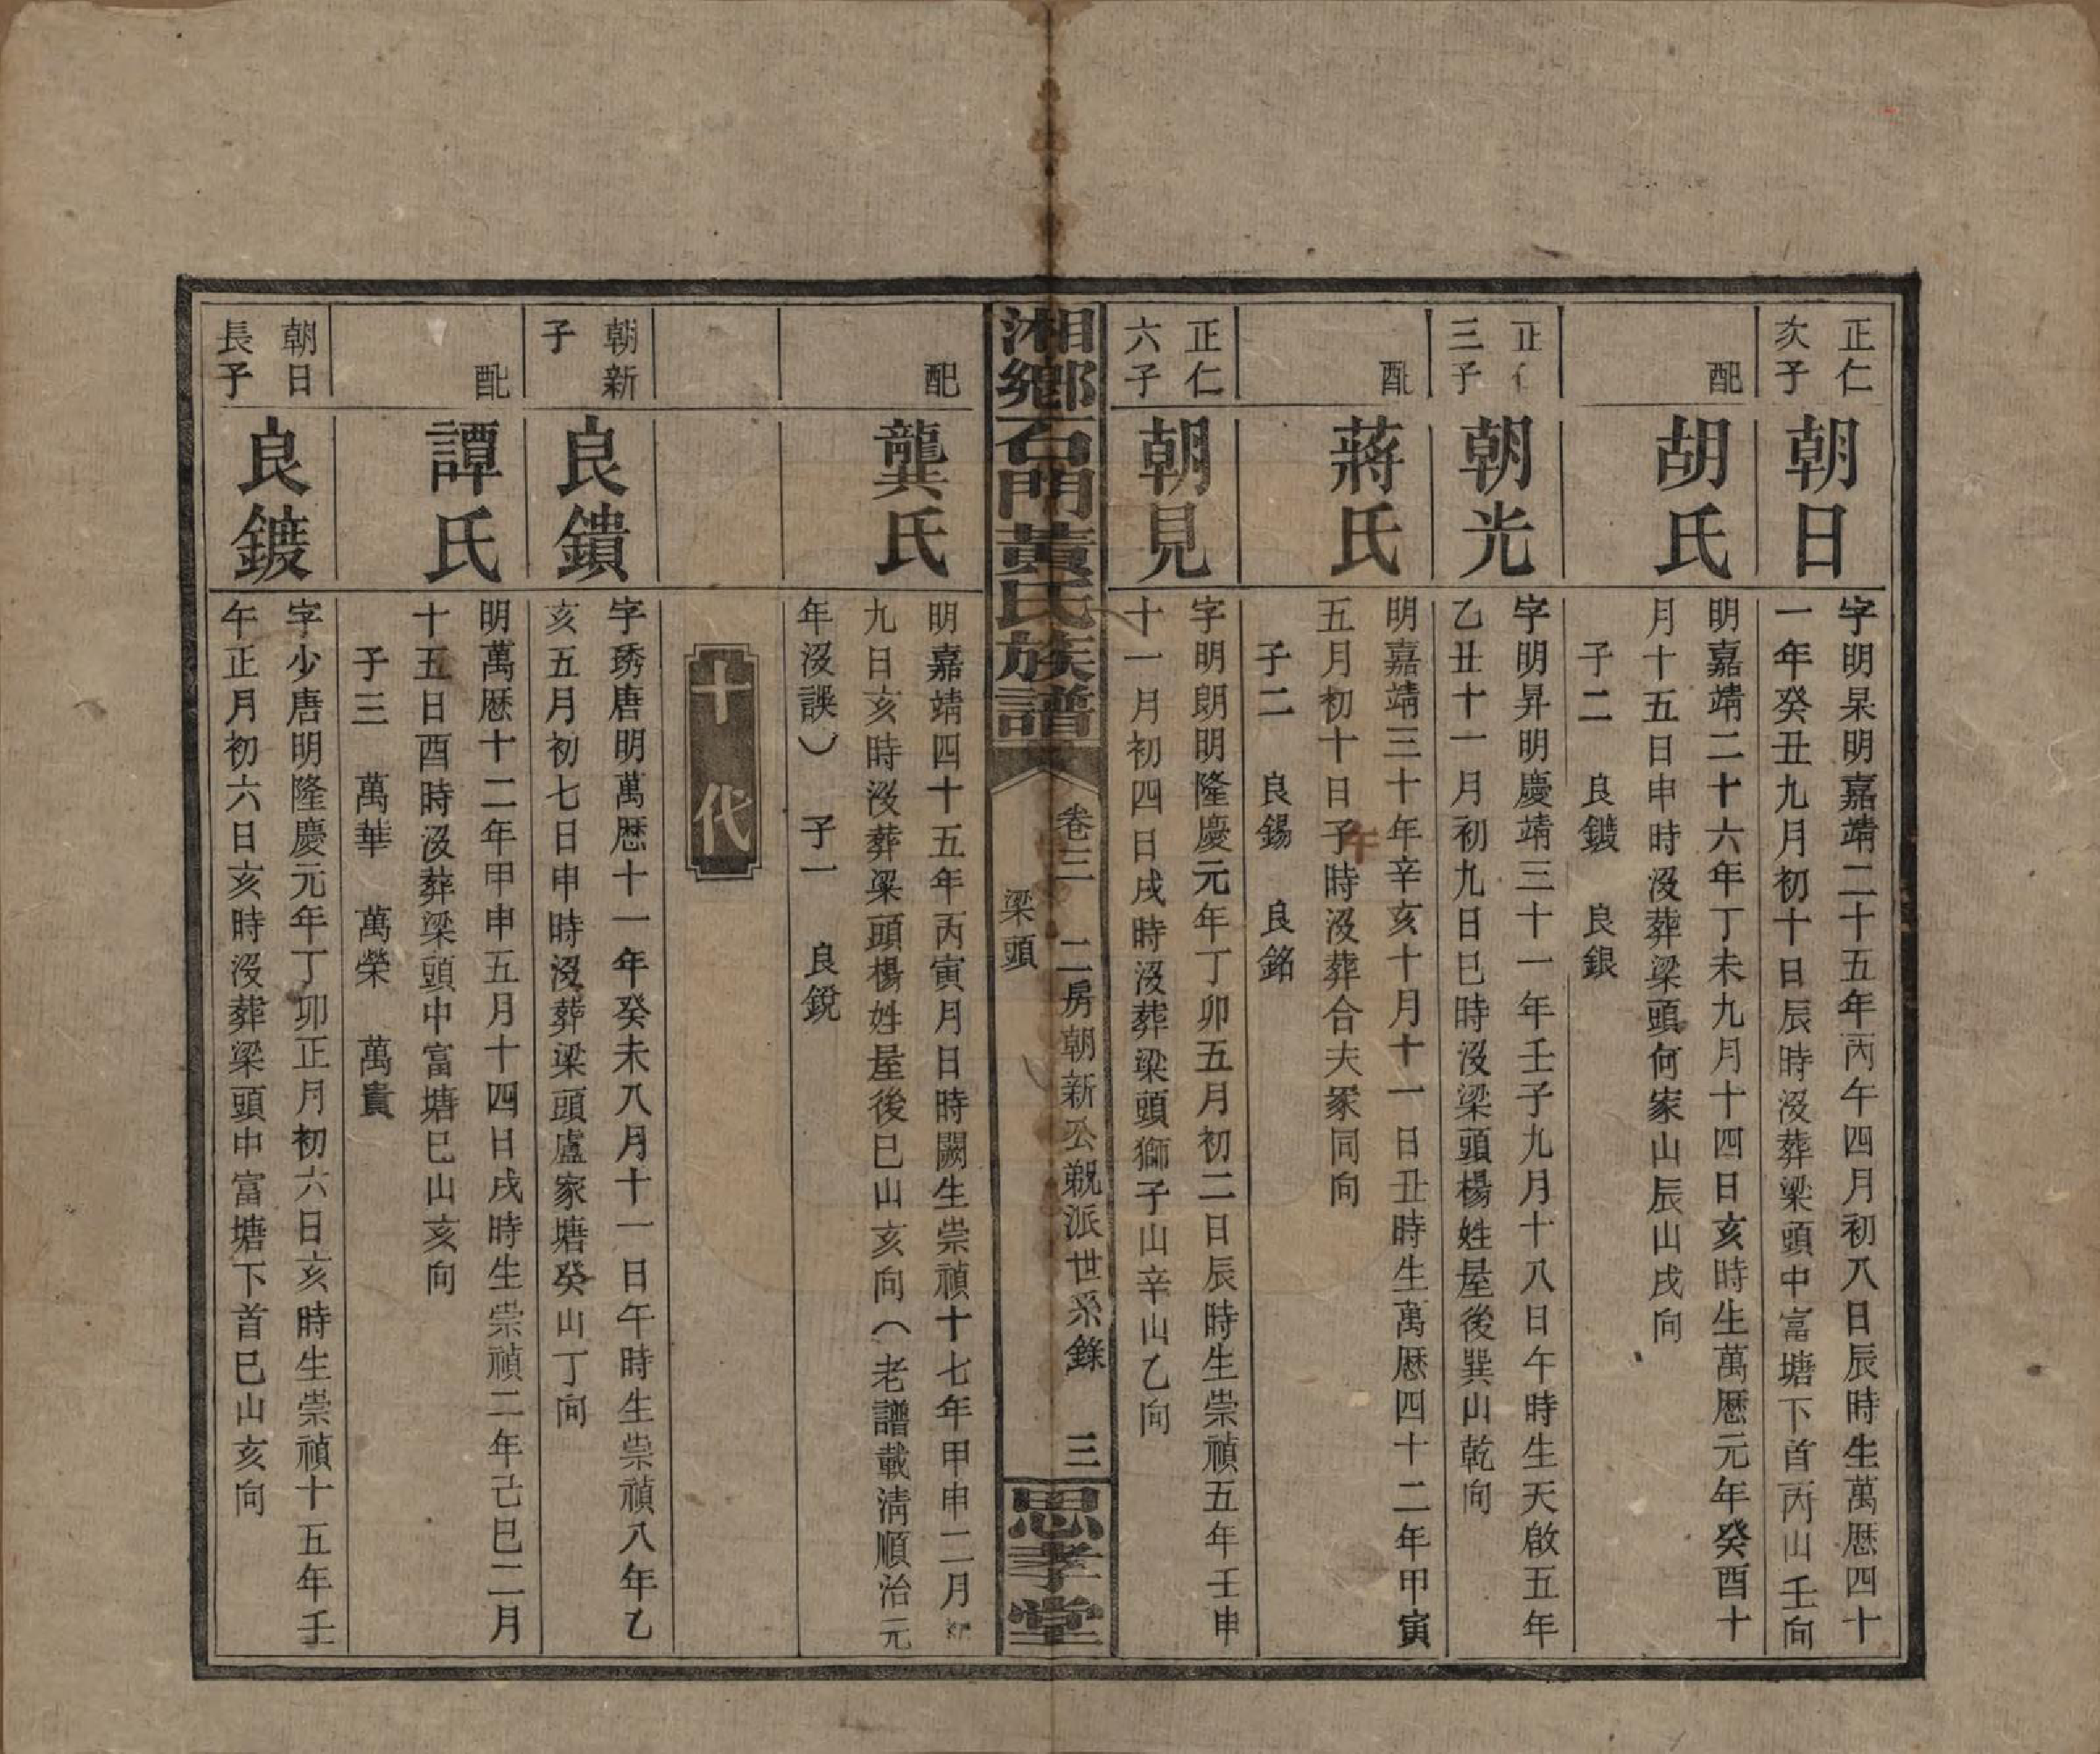 正仁
次子
朝日
字明杲明嘉靖二十五年丙午四月初八日辰時生萬厯四十
一年癸丑九月初十日辰時沒葬梁頭中富塘下首丙山壬向
配
胡氏
明嘉靖二十六年丁未九月十四日亥時生萬厯元年癸酉十
月十五日申時沒葬梁頭何家山辰山戌向
子二　良鍍　良銀
正仁
三子
朝光
字明昇明慶靖三十一年壬子九月十八日午時生天啟五年
乙丑十一月初九日巳時沒梁頭楊姓屋後巽山乾向
配
蔣氏
明嘉靖三十年辛亥十月十一日丑時生萬厯四十二年甲寅
五月初十日子時沒葬合夫冢同向
午
子二　良錫　良銘
正仁
六子
朝見
字明朗明隆慶元年丁卯五月初二日辰時生崇禎五年壬申
十一月初四日戌時沒葬梁頭獅子山辛山乙向
湘鄉石門黃氏族譜
卷三　二房朝新公覲派世系錄　三
梁頭
思孝堂
配
龔氏
明嘉靖四十五年丙寅月日時闕生崇禎十七年甲申二月初
九日亥時沒葬梁頭楊姓屋後巳山亥向（老譜載淸順治元
年沒誤）　子一　良銳
十代
朝新
子
良鐀
字琇唐明萬厯十一年癸未八月十一日午時生崇禎八年乙
亥五月初七日申時沒葬梁頭盧家塘癸山丁向
配
譚氏
明萬厯十二年甲申五月十四日戌時生崇禎二年己巳二月
十五日酉時沒葬梁頭中富塘巳山亥向
子三　萬華　萬榮　萬貴
朝日
長子
良鍍
字少唐明隆慶元年丁卯正月初六日亥時生崇禎十五年壬
午正月初六日亥時沒葬梁頭中富塘下首巳山亥向